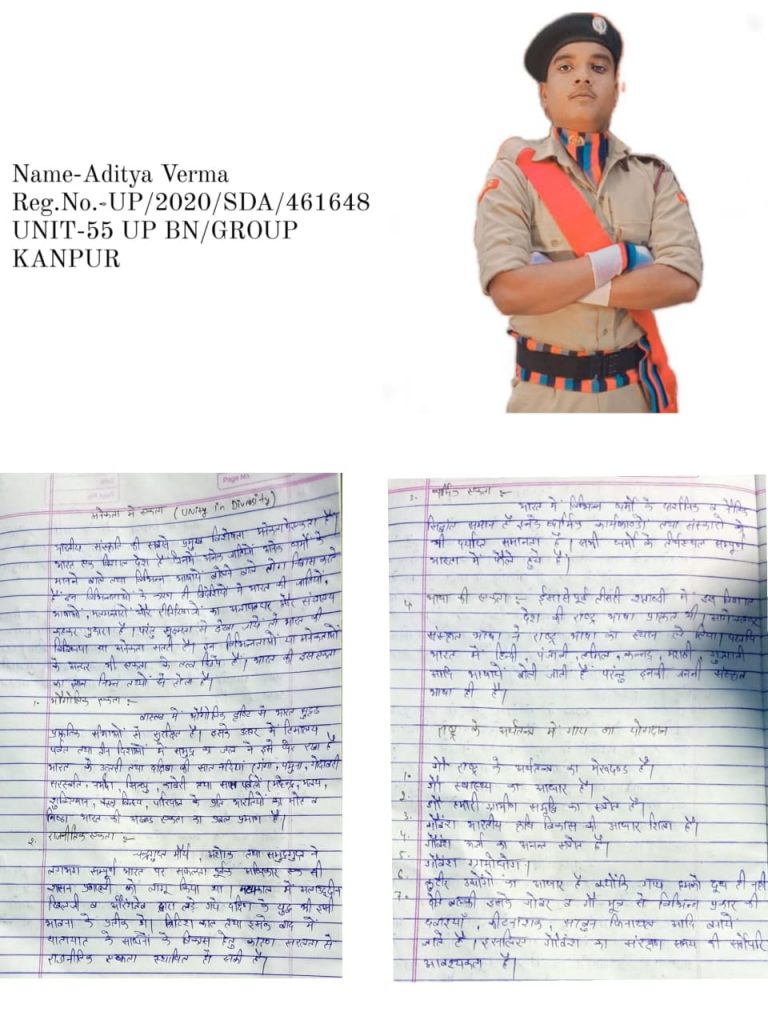 Name-Aditya Verma
Reg.No.-UP/2020/SDA/461648
UNIT-55 UP BN/GROUP
KANPUR
Page No.
अनेकता में एकता (Unity in Diversity)
भारतीय संस्कृति की सबसे प्रमुख विशेषता अनेकता में एकता है।
भारत एक विशाल देश है जिसमें अनेक जातियाँ अनेक धर्मों के
मानने वाले तथा विभिन्न भाषायें बोलने वाले लोग निवास करते
हैं इन विभिन्नताओं के कारण ही विदेशियों ने भारत को जातियों,
भाषाओं, और रीतिरिवाजों का अजायबघर और संग्रहालय
कहकर पुकारा है। परंतु सूक्ष्मता से देखा जाये तो भारत की
विभिन्नता या अनेकता बाहरी है। इन विभिन्नताओं या अनेकताओं
के अन्दर भी एकता के तत्व छिपे हैं। भारत की इस एकता
का ज्ञान निम्न तथ्यों से होता है।
1. भौगोलिक एकता :-
वास्तव में भौगोलिक दृष्टि से भारत भूखण्ड
प्राकृतिक सीमाओं से सुरक्षित है। इसके उत्तर में हिमालय
पर्वत तथा तीन दिशाओं में समुद्र के जल ने इसे घेर रखा है
भारत के उत्तरी तथा दक्षिण की सात नदियां (गंगा, यमुना, गोदावरी
सरस्वती, नर्मदा, सिन्धु, कावेरी तथा सात पर्वतों (महेन्द्र, मलय,
शुक्तिमान, विंध्य, पारियात्र के प्रति भारतीयों का मोह व
निष्ठा भारत की अखण्ड एकता का प्रबल प्रमाण है।
2. राजनीतिक एकता :-
चन्द्रगुप्त मौर्य, अशोक तथा समुद्रगुप्त ने
लगभग सम्पूर्ण भारत पर अधिकार एक सी
शासन प्रणाली को लागू किया था। मध्यकाल में अलाउद्दीन
खिलजी व औरंगजेब द्वारा लड़े गये दक्षिण के युद्ध भी इसी
भावना के प्रतीक थे। ब्रिटिश काल तथा इसके बाद में
यातायात के साधनों के विकास हेतु कारण सरलता से
राजनीतिक एकता स्थापित हो सकी है।
3. धार्मिक एकता :-
भारत में विभिन्न धर्मों के दार्शनिक व नैतिक
सिद्धांत समान हैं इनके धार्मिक कर्मकाण्डों तथा संस्कारों में
भी पर्याप्त समानता है। सभी धर्मों के तीर्थस्थल सम्पूर्ण
भारत में फैले हुये हैं।
4. भाषा की एकता :- ईसा से पूर्व तीसरी शताब्दी में इस विशाल
देश की राष्ट्र भाषा प्राकृत थी।
संस्कृत भाषा ने राष्ट्र भाषा का स्थान ले लिया। यद्यपि
भारत में हिन्दी पंजाबी, तमिल, कन्नड़, मराठी, गुजराती
आदि भाषायें बोली जाती हैं परंतु इनकी जननी संस्कृत
भाषा ही है।
राष्ट्र के अर्थतन्त्र में गाय का योगदान
1. गौ राष्ट्र के अर्थतन्त्र का मेरूदण्ड है।
2. गौ स्वास्थ्य का आधार है।
3. गौ हमारी ग्रामीण समृद्धि का स्त्रोत है।
4. गोवंश भारतीय कृषि विकास की आधार शिला है।
5. गोवंश ऊर्जा का अनन्त स्त्रोत है।
6. गोवंश ग्रामोद्योग।
7. कुटीर उद्योगों का आधार है क्योंकि गाय हमको दूध ही नहीं
देती बल्की इसके गोबर व गौ मूत्र से विभिन्न प्रकार की
दवाइयाँ, कीटनाशक, साबुन फिनायल आदि बनाये
जाते हैं। इसलिए गोवंश का संरक्षण समय की सर्वोपरि
आवश्यकता है।